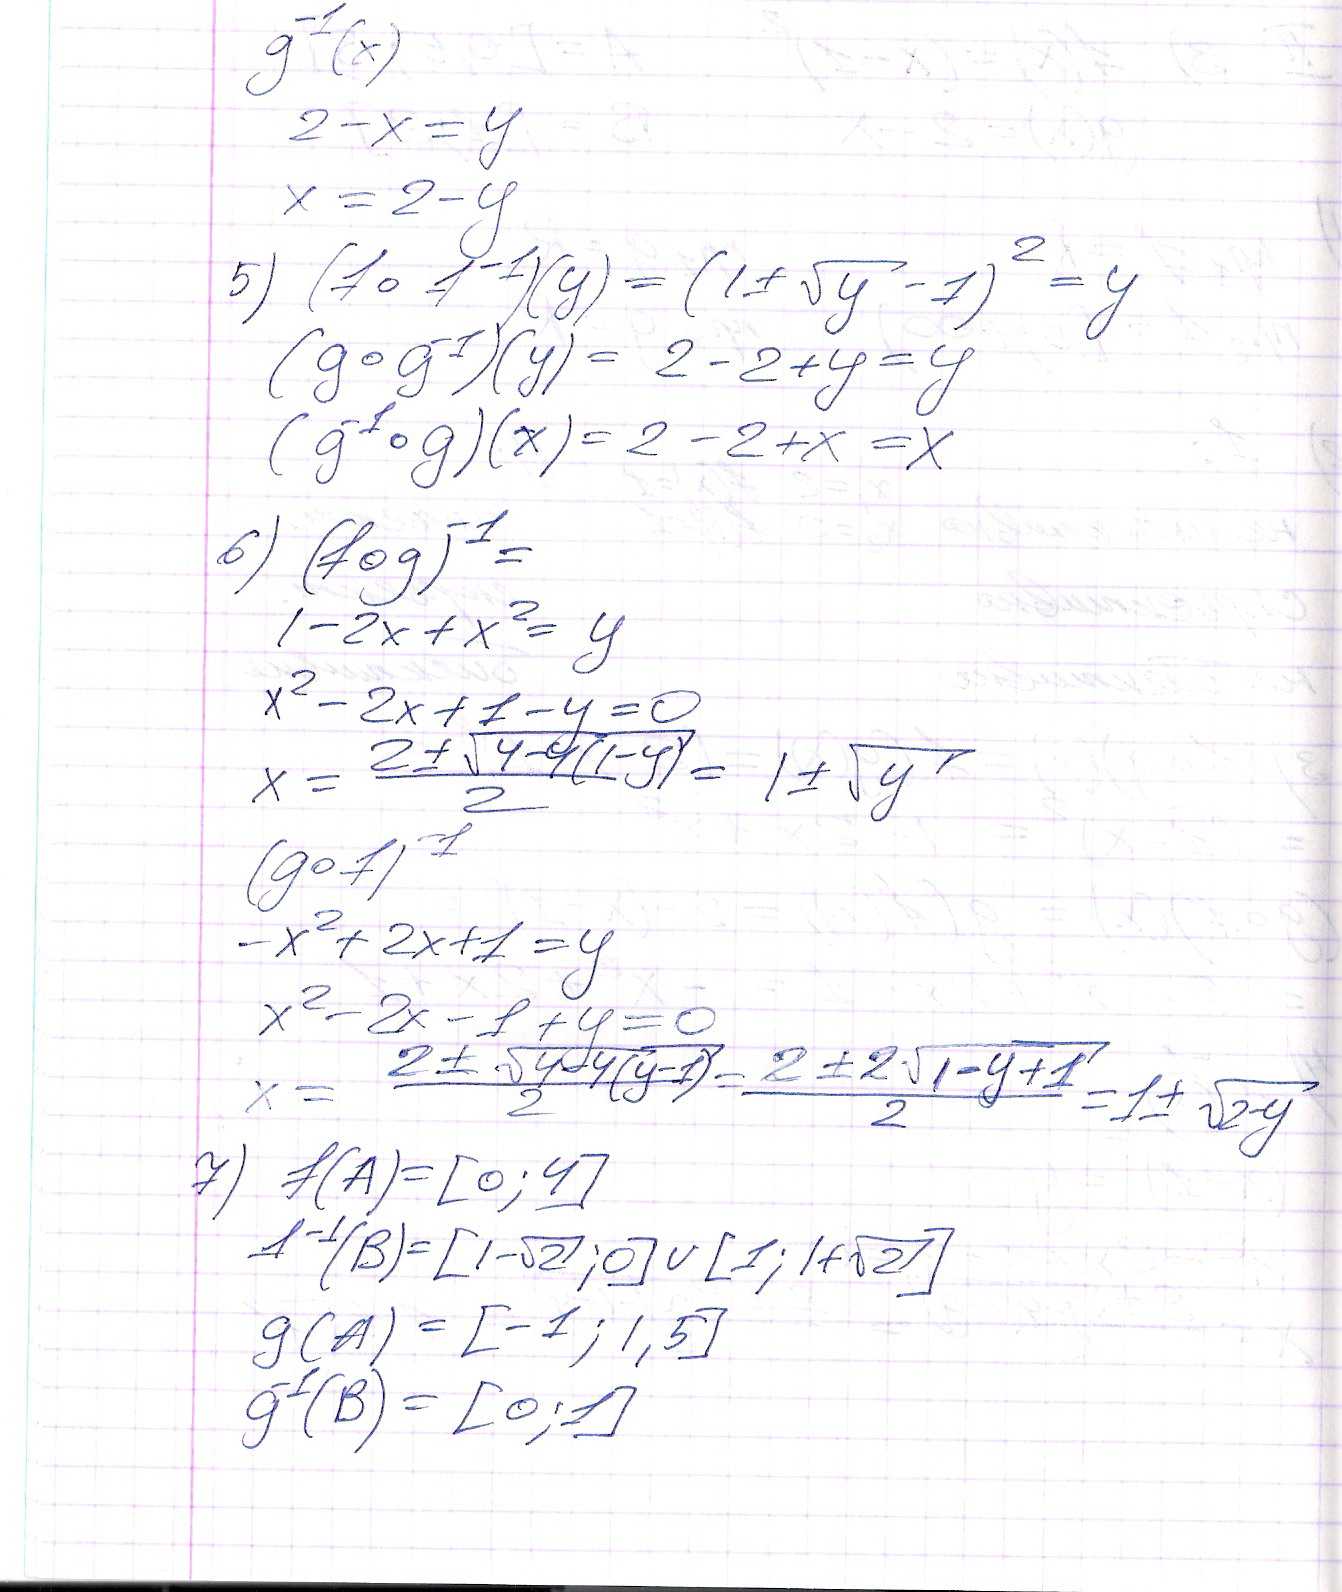 g⁻¹(x)
2-x=y
x=2-y
5) (f∘f⁻¹)(y)=(1±√y-1)²=y
(g∘g⁻¹)(y)=2-2+y=y
(g⁻¹∘g)(x)=2-2+x=x
6) (f∘g)⁻¹=
1-2x+x²=y
x²-2x+1-y=0
x=(2±√(4-4(1-y)))/2=1±√y
(g∘f)⁻¹
-x²+2x+1=y
x²-2x-1+y=0
x=(2±√(4-4(y-1)))/2=(2±2√(1-y+1))/2=1±√(2-y)
7) f(A)=[0;4]
f⁻¹(B)=[1-√2;0]∪[1;1+√2]
g(A)=[-1;1,5]
g⁻¹(B)=[0;1]